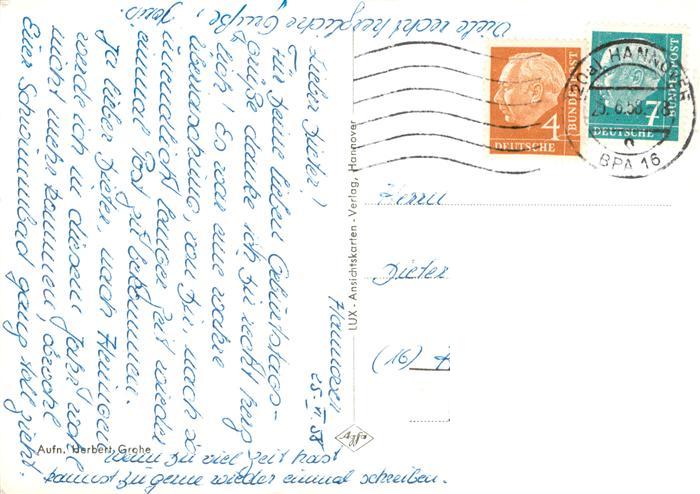 Hannover
25. VI. 58
Lieber Dieter!
Für Deine lieben Geburtstags-
grüße danke ich Dir recht herz-
lich! Es war eine wahre
Überraschung, von Dir, nach so
unendlich langer Zeit wieder
einmal Post zu bekommen.
Ja lieber Dieter, nach
werde ich in diesem Jahr wohl
nicht mehr kommen, obwohl
Euer Schwimmbad ganz toll zieht.
Wenn Du viel Zeit hast
kannst Du gerne wieder einmal schreiben.
Viele recht herzliche Grüße,
Aufn. Herbert Grohe
LUX - Ansichtskarten - Verlag, Hannover
Agfa
4
DEUTSCHE
BUNDESPOST
7
DEUTSCHE
BUNDESPOST
(20a) HANNOVER
25.6.58
BPA 16
Herrn
Dieter
(16)